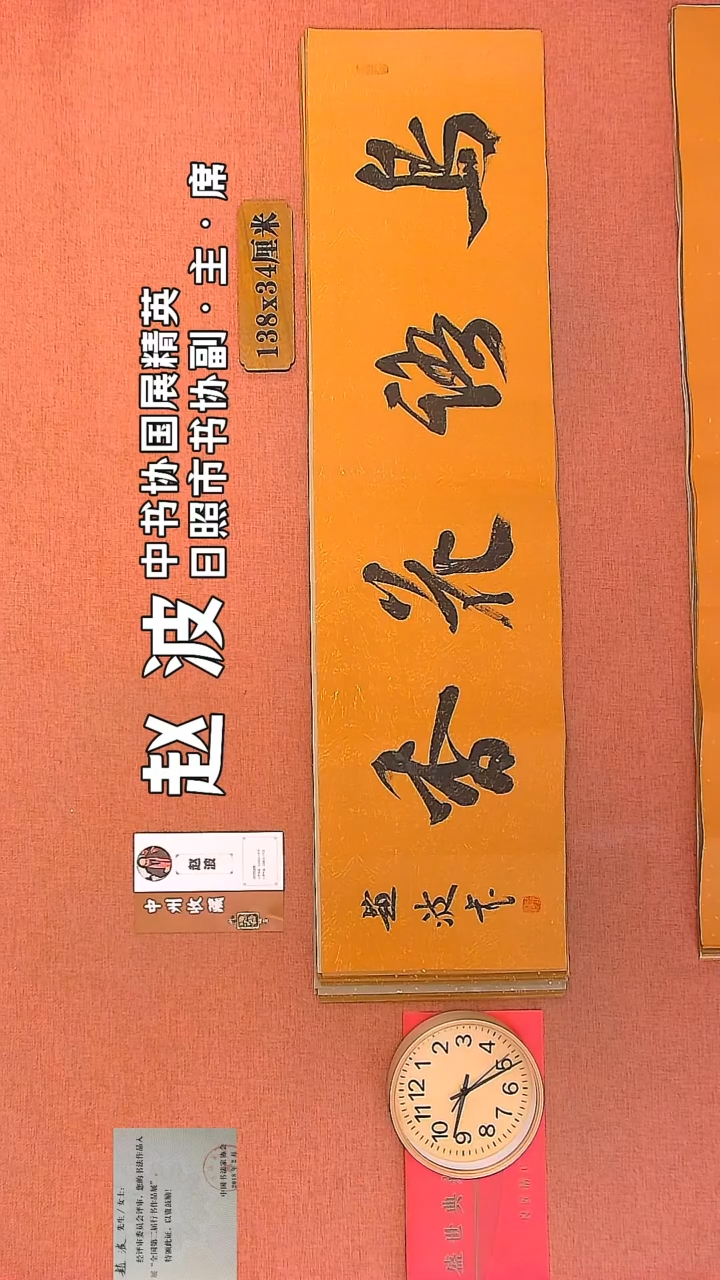 赵波
中书协国展精英
日照市书协副·主·席
138x34厘米
鸟語花香
趙波书
赵波
中州收藏
趙波 先生/女士：
经评审委员会评审，您的书法作品入
展“全国第二届行书作品展”。
特颁此证，以资鼓励！
中国书法家协会
盛世典
12 1 2 3 4 5 6 7 8 9 10 11